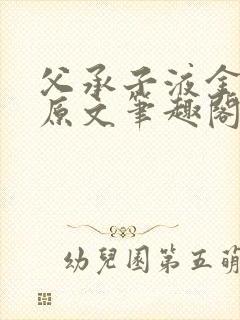 父承子液全
原文笔趣阁
幼兒園第五萌